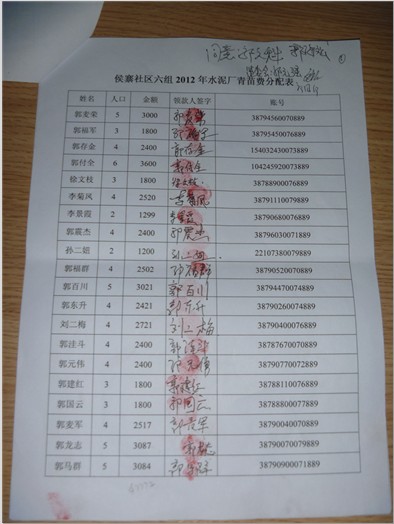 同意
①
侯寨社区六组 2012 年水泥厂青苗费分配表
姓名 人口 金额 领款人签字 账号
郭麦荣 5 3000 郭麦荣 38794560070889
郭福军 3 1800 郭福军 38795450076889
郭存金 4 2400 郭存金 154032430073889
郭付全 6 3600 郭付全 104245920073889
徐文枝 3 1800 徐文枝 38788900076889
李菊风 4 2520 李菊风 38791110079889
李景霞 2 1299 38790680076889
郭震杰 4 2400 郭震杰 38796030071889
孙二妞 2 1200 22107380079889
郭福群 4 2502 郭福群 38790520070889
郭百川 5 3021 郭百川 38794470074889
郭东升 4 2421 郭东升 38790260074889
刘二梅 4 2721 刘二梅 38790400076889
郭洼斗 4 2400 38787670070889
郭元伟 4 2400 郭元伟 38790770072889
郭建红 3 1800 郭建红 38788110076889
郭国云 3 1800 郭国云 38788800077889
郭麦军 4 2517 郭麦军 38790040070889
郭龙志 5 3087 38790070079889
郭马群 5 3084 38790900071889